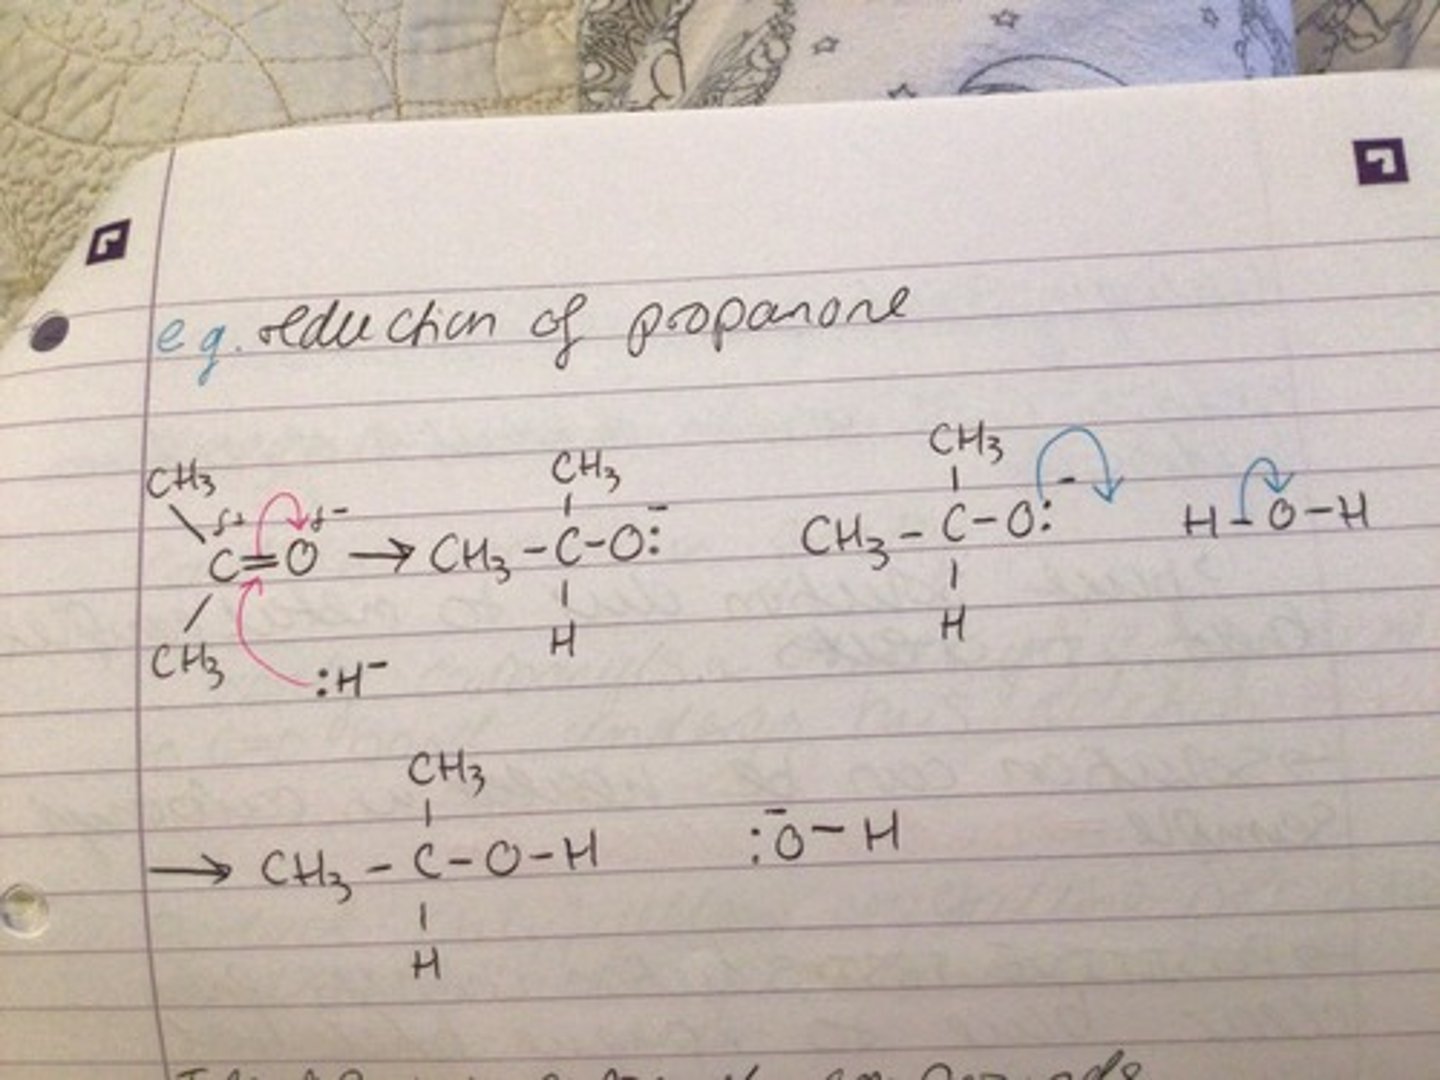 e.g. reduction of propanone
CH₃ CH₃ CH₃
δ+ δ-
C=O → CH₃-C-O:⁻ CH₃-C-O:⁻ H-O-H
CH₃ H H
:H⁻
CH₃
→ CH₃-C-O-H :O⁻-H
H